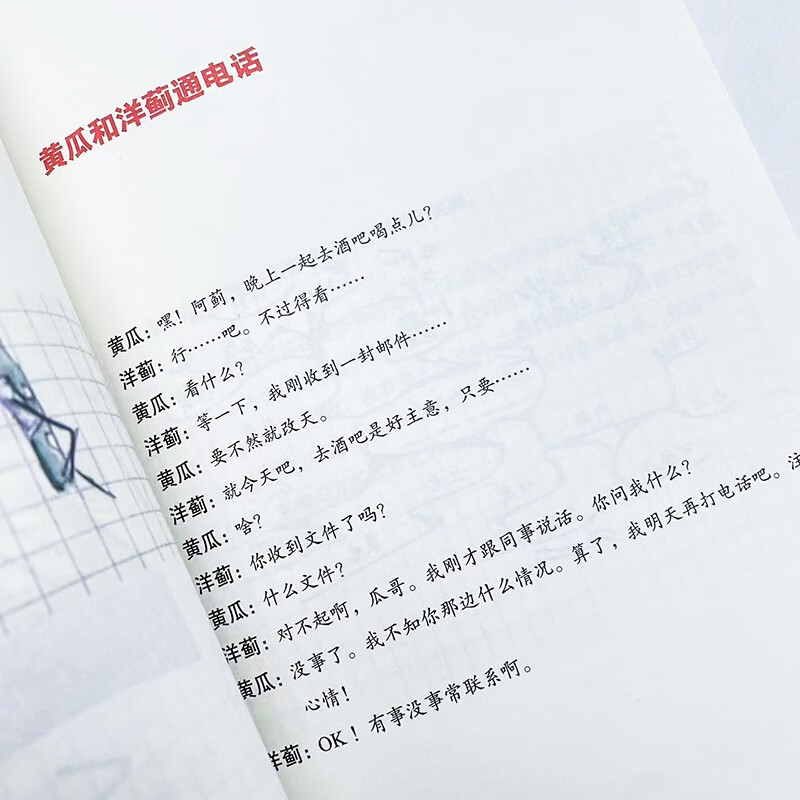 黄瓜和洋蓟通电话
黄瓜：嘿！阿蓟，晚上一起去酒吧喝点儿？
洋蓟：行……吧。不过得看……
黄瓜：看什么？
洋蓟：等一下，我刚收到一封邮件……
黄瓜：要不然就改天。
洋蓟：就今天吧，去酒吧是好主意，只要……
黄瓜：啥？
洋蓟：你收到文件了吗？
黄瓜：什么文件？
洋蓟：对不起啊，瓜哥。我刚才跟同事说话。你问我什么？
黄瓜：没事了。我不知你那边什么情况。算了，我明天再打电话吧。注
心情！
洋蓟：OK！有事没事常联系啊。